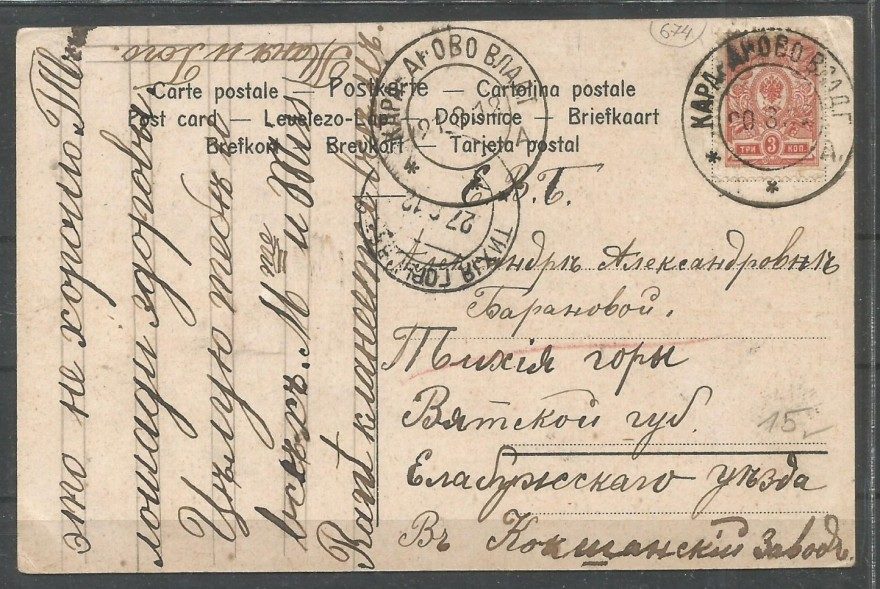 674
Carte postale — Postkarte — Cartolina postale
Post card — Levelezo-Lap — Dopisnice — Briefkaart
Brefkort — Brevkort — Tarjeta postal
КАРАЧАРОВО ВЛАД. Г.
КАРАЧАРОВО ВЛАД. Г.
А.
ТРИ 3 КОП.
27 6 12
ТИХІЯ ГОРЫ
Е. В. Б.
Александровнѣ
Барановой.
Тихія горы
Вятской губ.
15-
Елабужскаго уѣзда
Въ Кокшанскій Заводъ.
это не хорошо.
лошади здоровы.
Цѣлую тебя и
всѣхъ. M me и Miss
кланяется